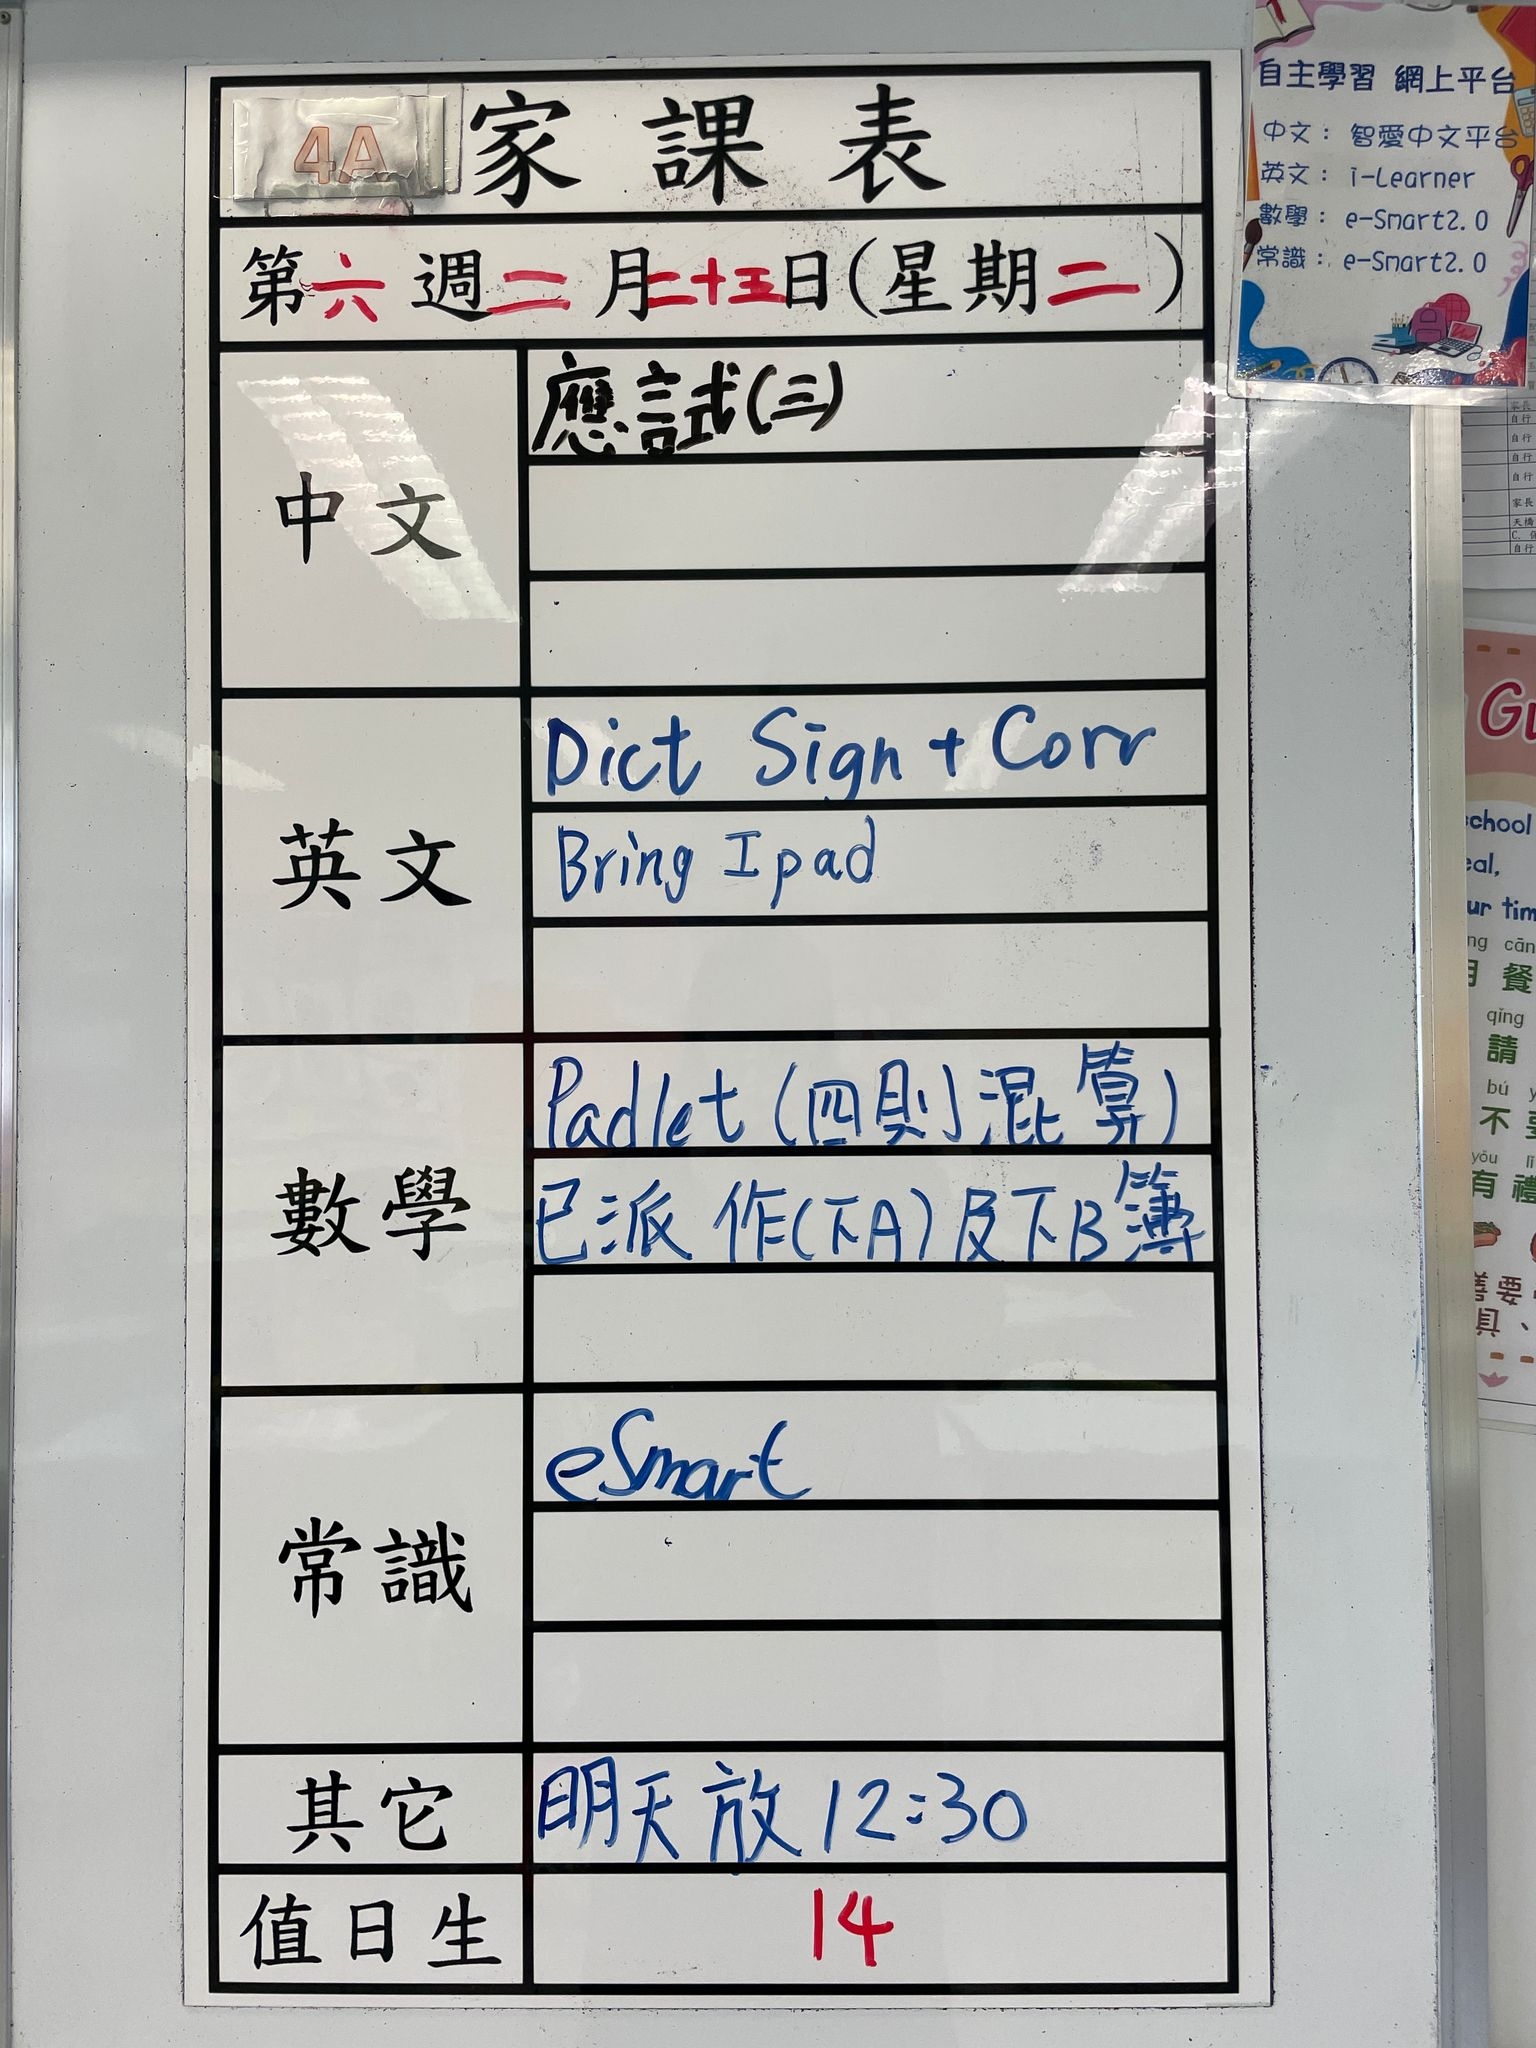 4A 家課表
第六週二月二十五日(星期二)
中文
應試(三)
英文
Dict Sign + Corr
Bring Ipad
數學
Padlet (四則混算)
已派 作(下A)及下B簿
常識
eSmart
其它
明天放 12:30
值日生
14
自主學習 網上平台
中文： 智愛中文平台
英文： i-Learner
數學： e-Smart2.0
常識： e-Smart2.0
家長
自行
自行
自行
自行
家長
天橋
自行
school
ur tim
餐
qǐng
請
bú
不
yǒu
有禮